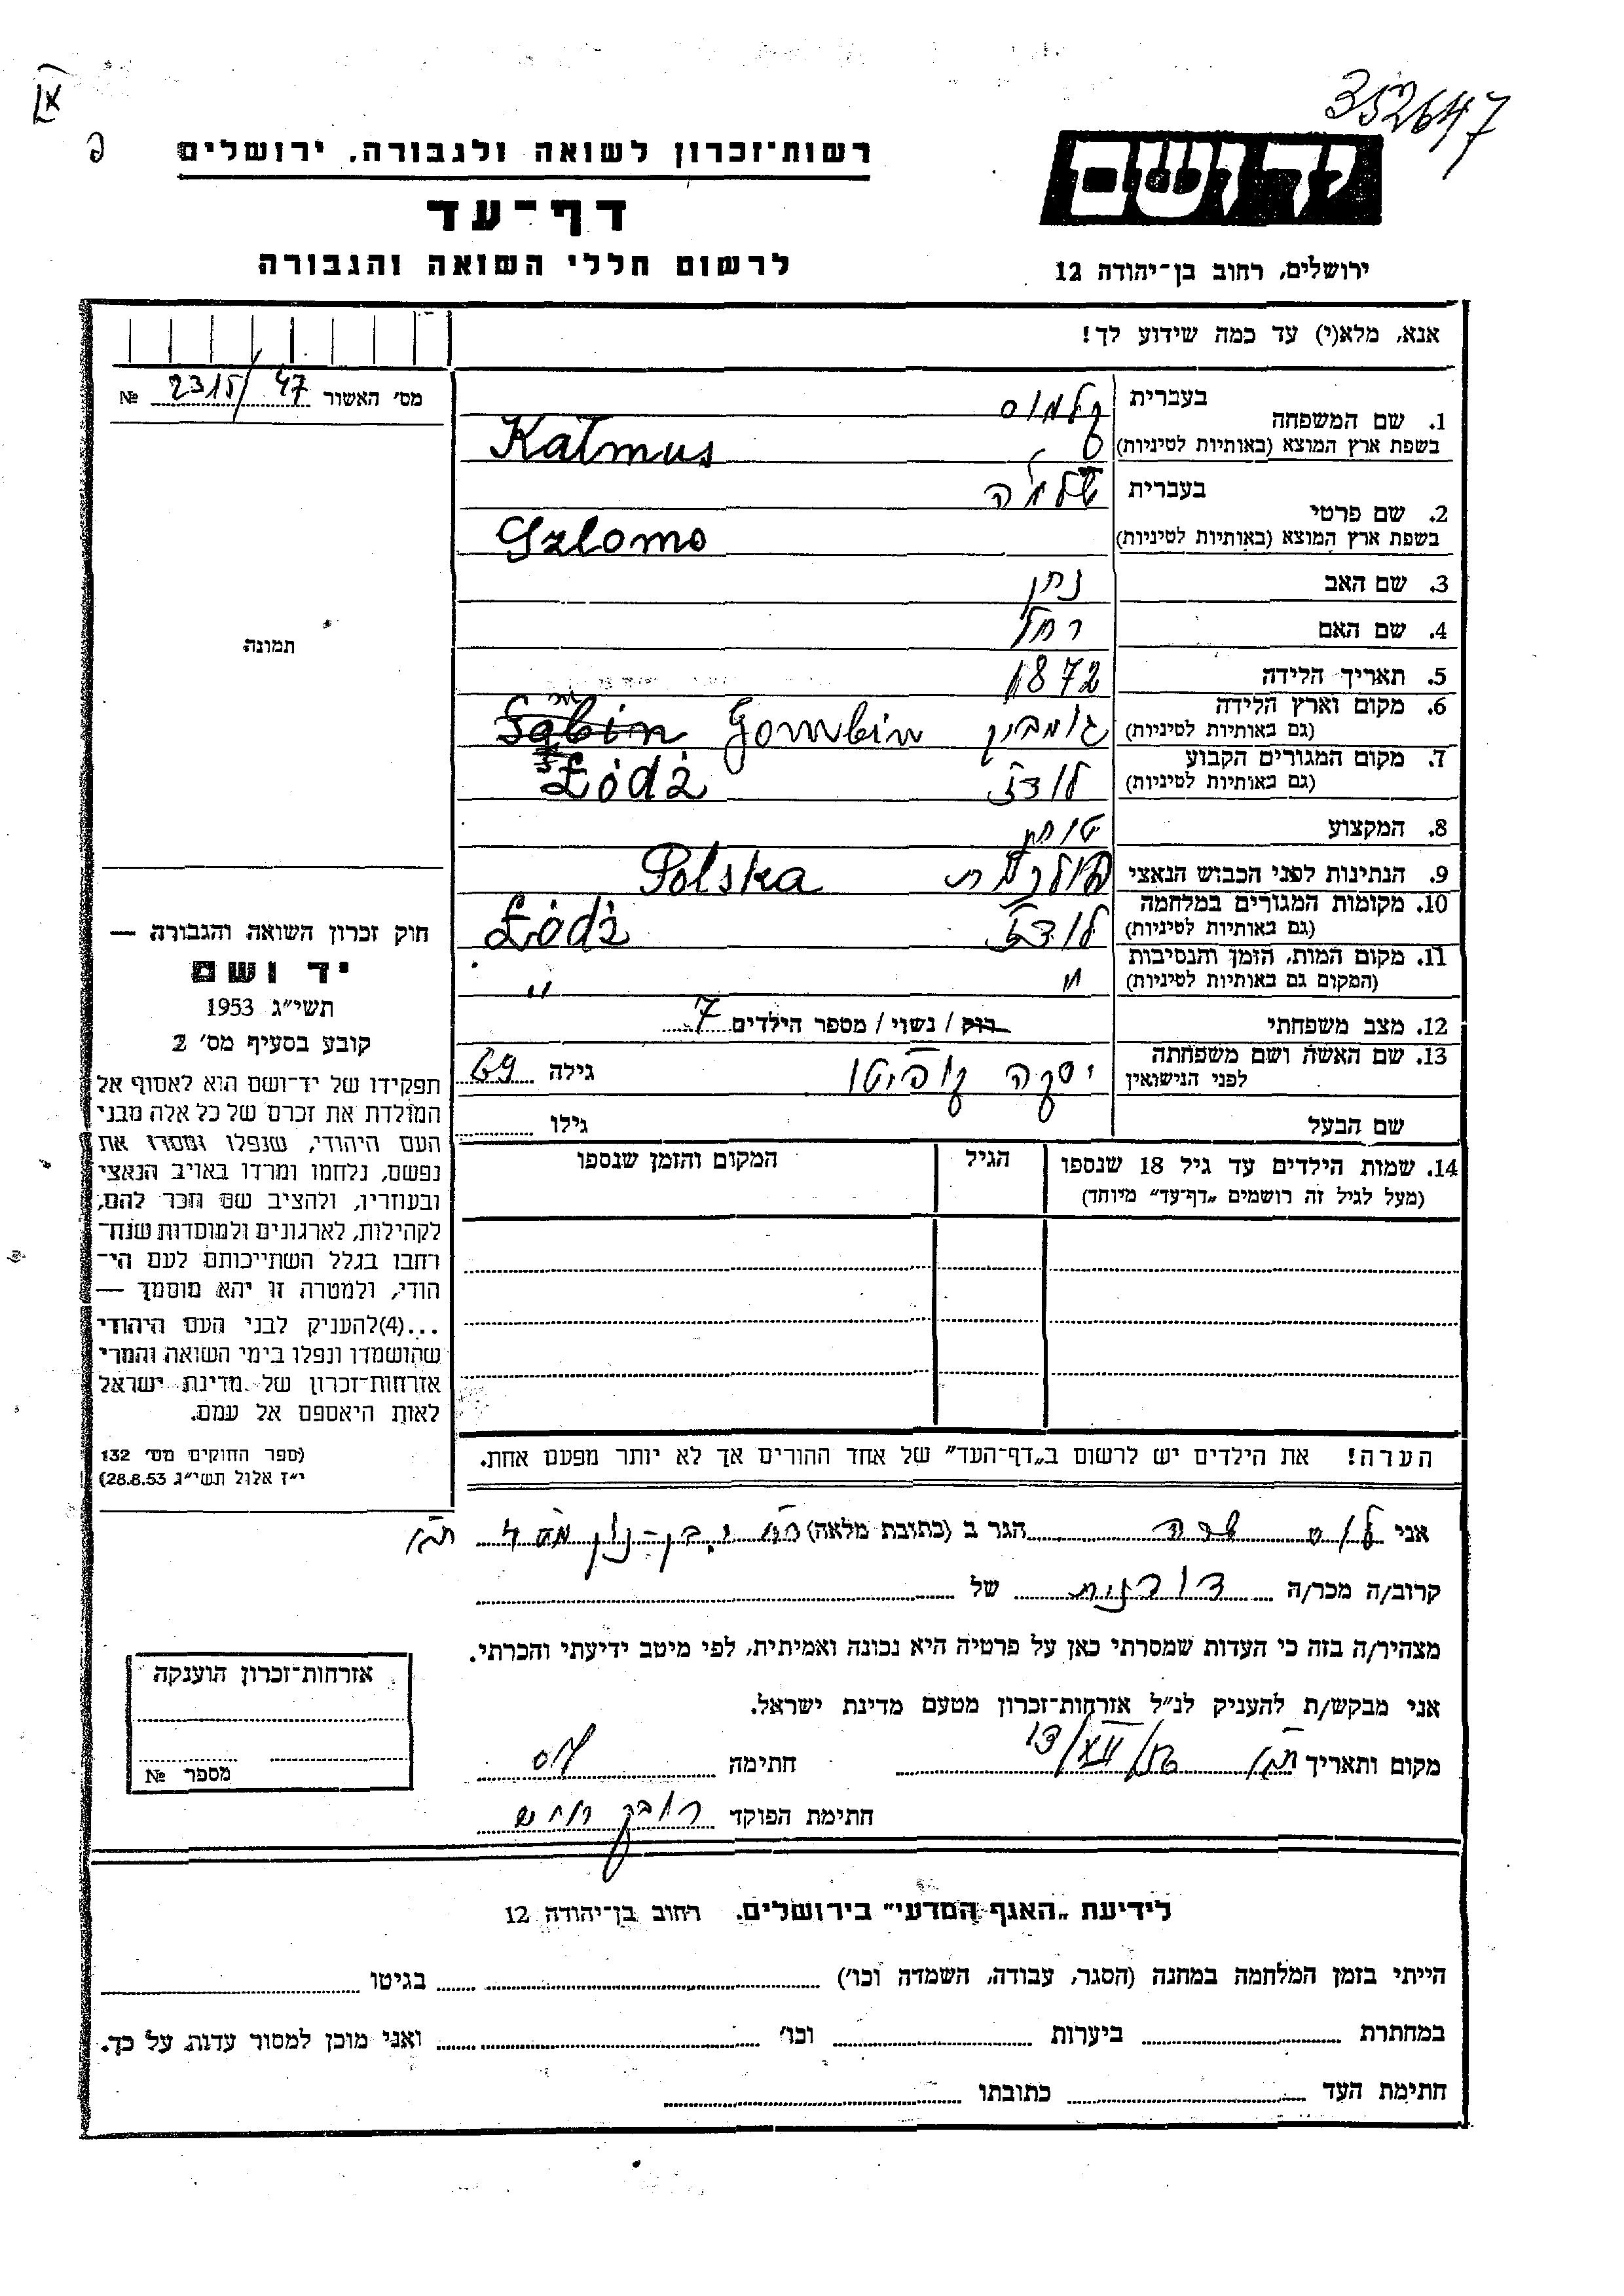 352647
רשות־זכרון לשואה ולגבורה, ירושלים
דף־עד
לרשום חללי השואה והגבורה
יד ושם
ירושלים, רחוב בן־יהודה 12
אנא, מלא(י) עד כמה שידוע לך!
מס' האשור 2315/47 №
1. שם המשפחה בעברית קלמוס
בשפת ארץ המוצא (באותיות לטיניות) Kałmus
2. שם פרטי בעברית שלמה
בשפת ארץ המוצא (באותיות לטיניות) Szlomo
3. שם האב נתן
4. שם האם רחל
5. תאריך הלידה 1872
6. מקום וארץ הלידה גומבין Gombin
(גם באותיות לטיניות)
7. מקום המגורים הקבוע לודז Łódż
(גם באותיות לטיניות)
8. המקצוע
9. הנתינות לפני הכבוש הנאצי פולנית Polska
10. מקומות המגורים במלחמה לודז Łódż
(גם באותיות לטיניות)
11. מקום המות, הזמן והנסיבות " "
(המקום גם באותיות לטיניות)
12. מצב משפחתי רוק / נשוי / מספר הילדים 7
13. שם האשה ושם משפחתה
לפני הנישואין גילה 69
שם הבעל גילו
14. שמות הילדים עד גיל 18 שנספו הגיל המקום והזמן שנספו
(מעל לגיל זה רושמים „דף־עד" מיוחד)
הערה! את הילדים יש לרשום ב„דף־העד" של אחד ההורים אך לא יותר מפעם אחת.
תמונה
חוק זכרון השואה והגבורה —
יד ושם
תשי"ג 1953
קובע בסעיף מס' 2
תפקידו של יד־ושם הוא לאסוף אל
המולדת את זכרם של כל אלה מבני
העם היהודי, שנפלו ומסרו את
נפשם, נלחמו ומרדו באויב הנאצי
ובעוזריו, ולהציב שם וזכר להם,
לקהילות, לארגונים ולמוסדות שנח־
רחבו בגלל השתייכותם לעם הי־
הודי, ולמטרה זו יהא מוסמך —
...(4)להעניק לבני העם היהודי
שהושמדו ונפלו בימי השואה והמרי
אזרחות־זכרון של מדינת ישראל
לאות היאספם אל עמם.
(ספר החוקים מס' 132
י"ז אלול תשי"ג 28.8.53)
אני שרה הגר ב (כתובת מלאה)
קרוב/ה מכר/ה של
מצהיר/ה בזה כי העדות שמסרתי כאן על פרטיה היא נכונה ואמיתית, לפי מיטב ידיעתי והכרתי.
אני מבקש/ת להעניק לנ"ל אזרחות־זכרון מטעם מדינת ישראל.
מקום ותאריך 13/XII/56 חתימה
חתימת הפוקד
אזרחות־זכרון הוענקה
מספר №
לידיעת „האגף המדעי" בירושלים. רחוב בן־יהודה 12
הייתי בזמן המלחמה במחנה (הסגר, עבודה, השמדה וכו') בגיטו
במחתרת ביערות וכו' ואני מוכן למסור עדות על כך.
חתימת העד כתובתו